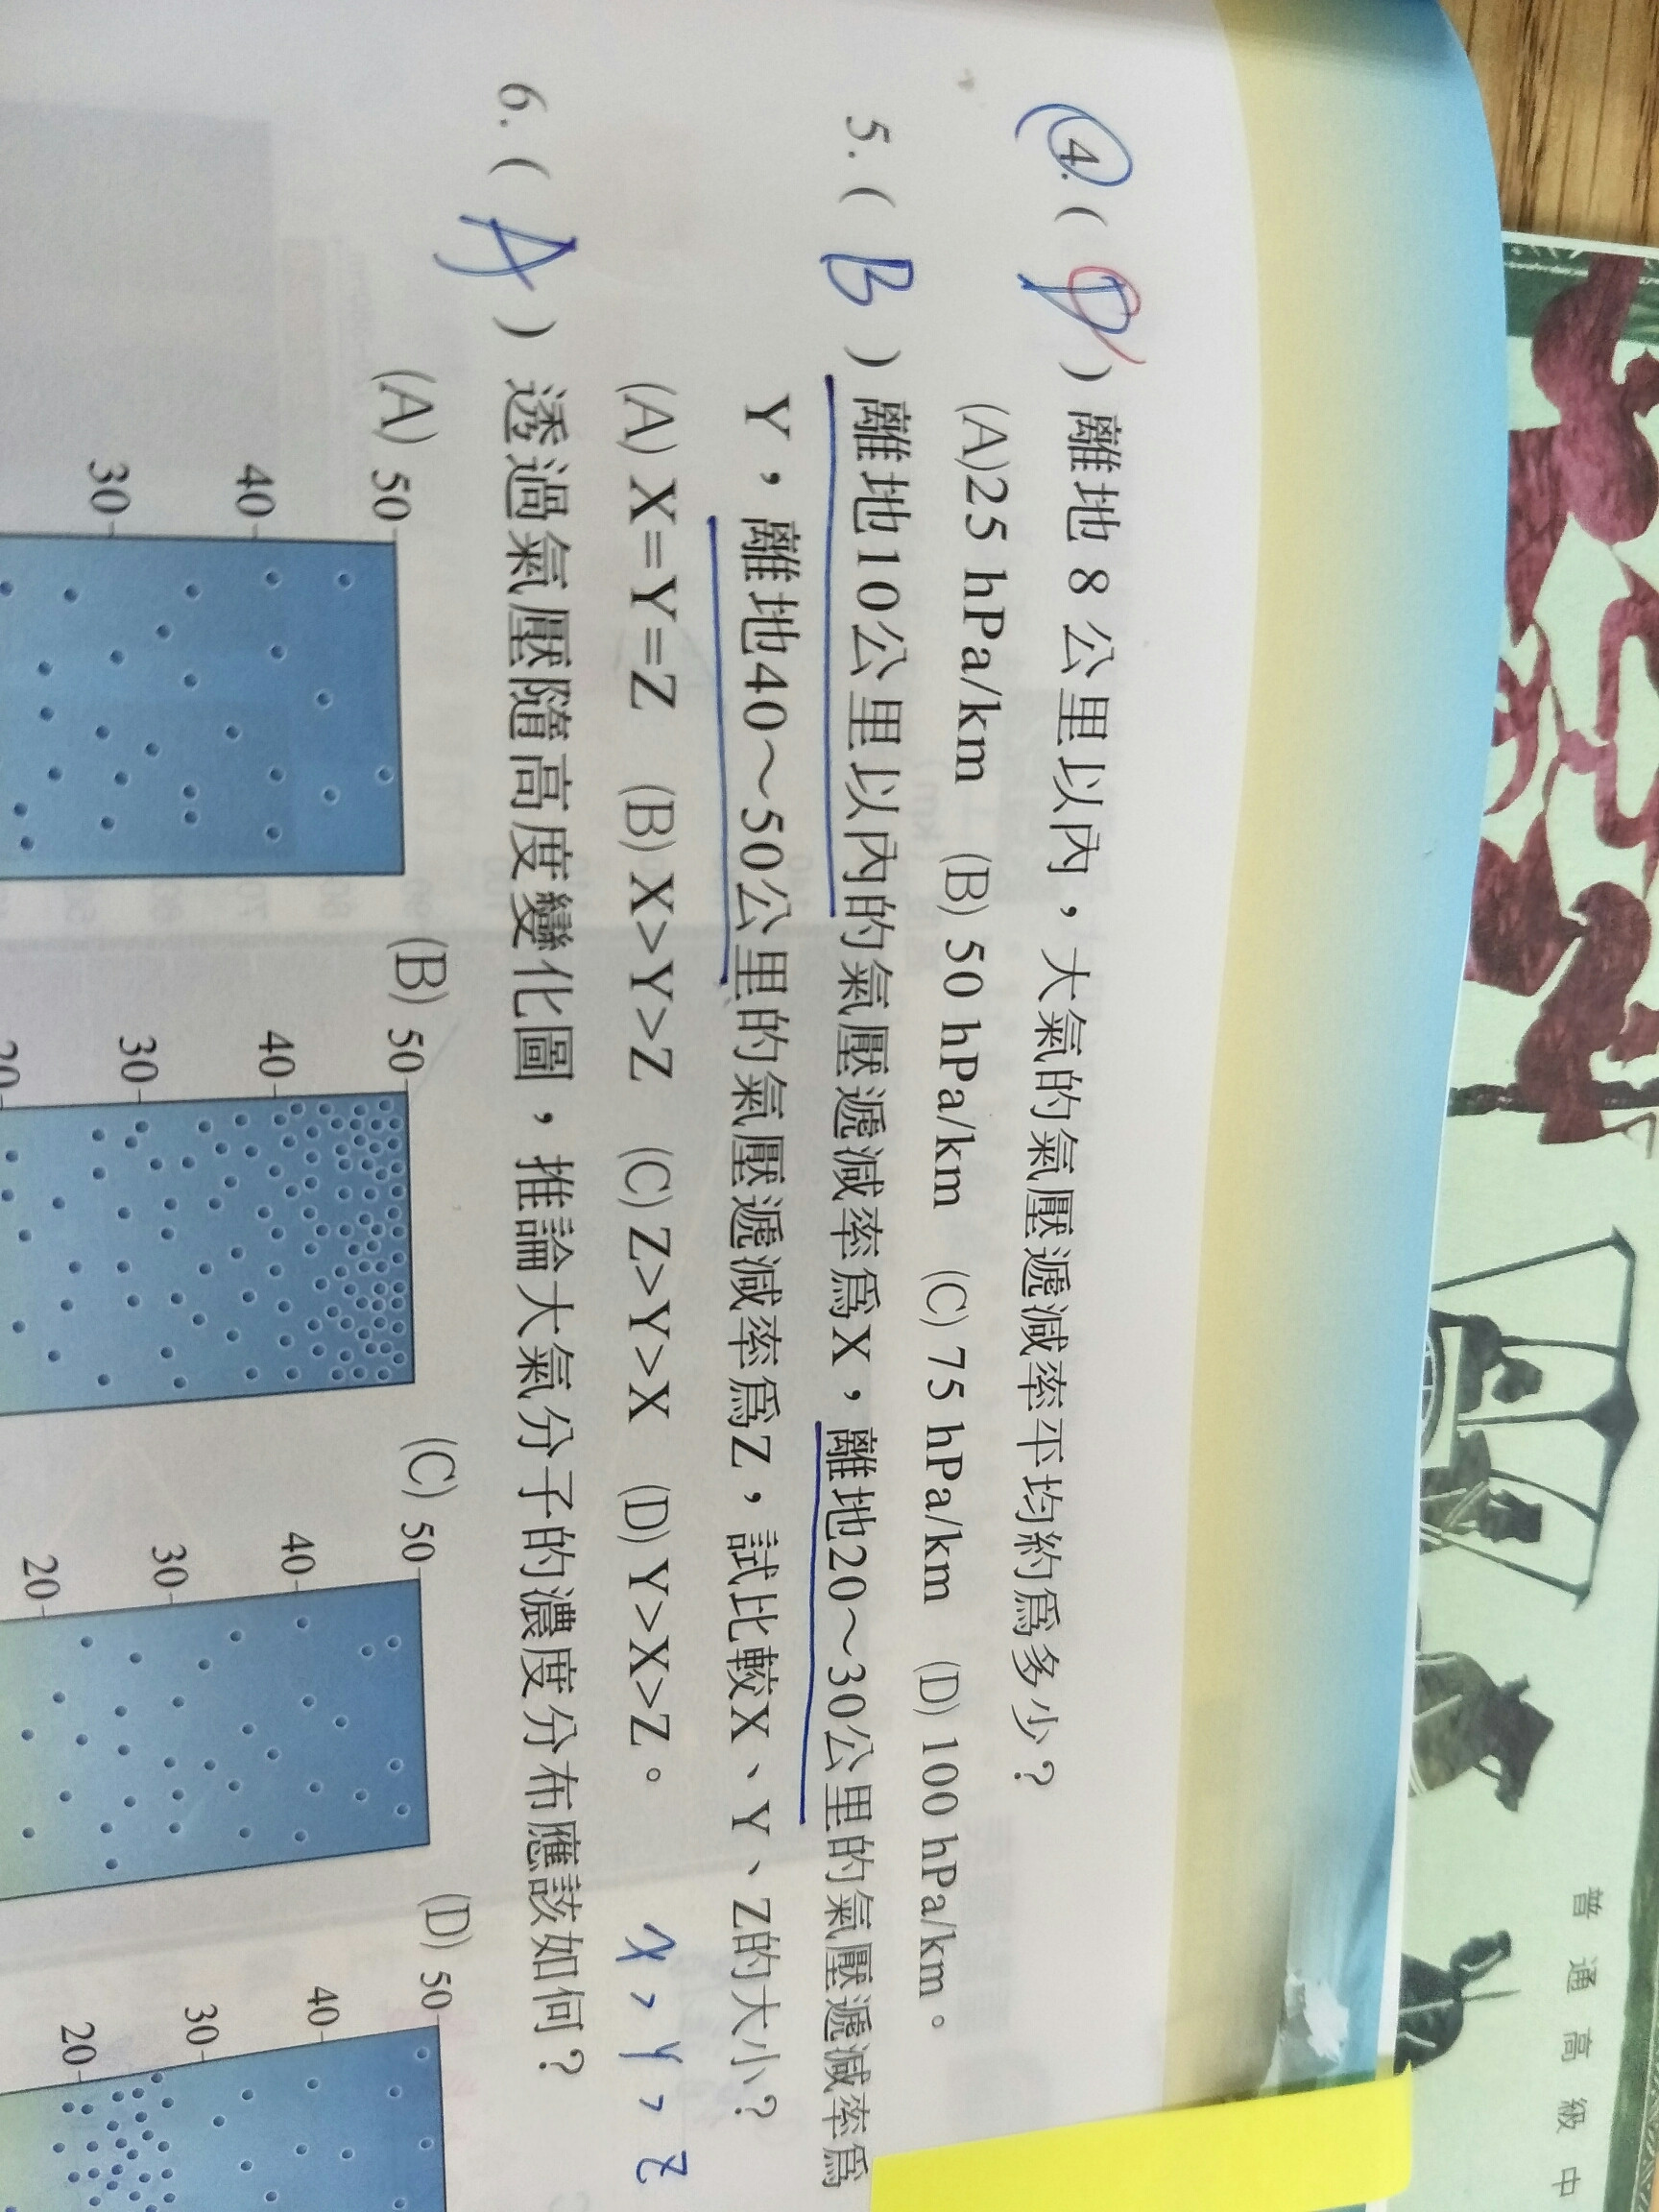 4. ( D ) 離地 8 公里以內，大氣的氣壓遞減率平均約為多少？
(A)25 hPa/km (B) 50 hPa/km (C) 75 hPa/km (D) 100 hPa/km。
5. ( B ) 離地10公里以內的氣壓遞減率為X，離地20～30公里的氣壓遞減率為
Y，離地40～50公里的氣壓遞減率為Z，試比較X、Y、Z的大小？
(A) X=Y=Z (B) X>Y>Z (C) Z>Y>X (D) Y>X>Z。 X > Y > Z
6. ( A ) 透過氣壓隨高度變化圖，推論大氣分子的濃度分布應該如何？
(A) 50
40
30
(B) 50
40
30
20
(C) 50
40
30
20
(D) 50
40
30
20
普通高級中